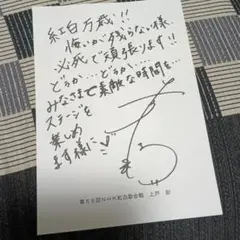 紅白万歳!!
悔いが残らない様、
必死で頑張ります!!
どうか…どうか…
みなさまで素敵な時間を…
ステージを
楽しめ
ます様に…
第56回NHK紅白歌合戦 上戸 彩